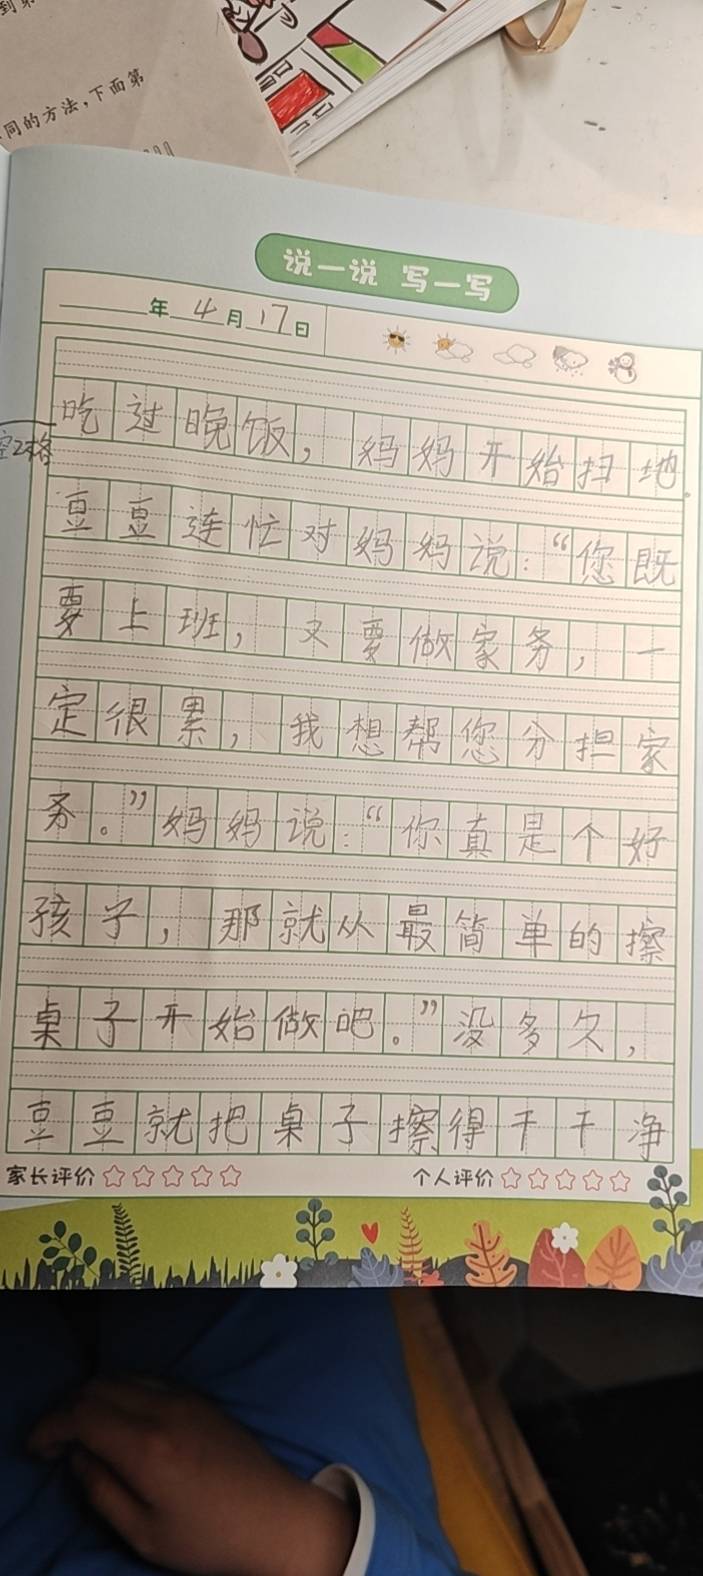 同的方法，下面第
说一说 写一写
年4月17日
空2格
吃过晚饭，妈妈开始扫地。
豆豆连忙对妈妈说：“您既
要上班，又要做家务，一
定很累，我想帮您分担家
务。”妈妈说：“你真是个好
孩子，那就从最简单的擦
桌子开始做吧。”没多久，
豆豆就把桌子擦得干干净
家长评价 个人评价